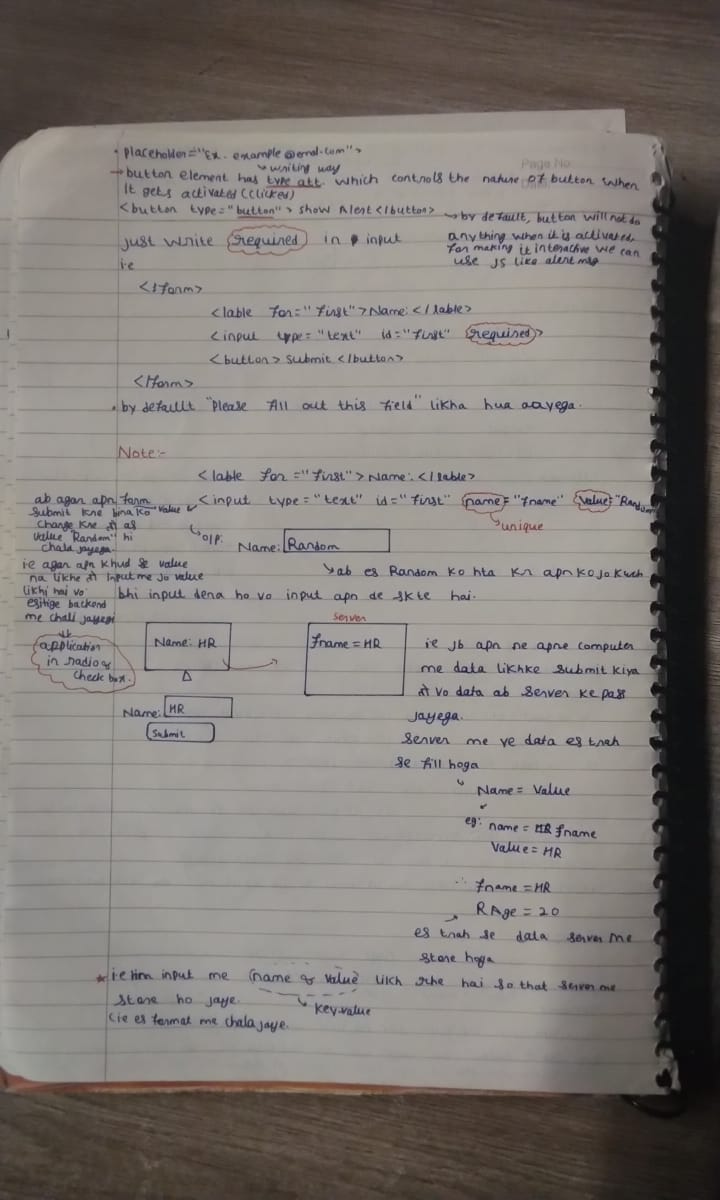 Page No
placeholder="Ex. example@email.com">
writing way
button element has type att. which controls the nature of button when
it gets activated (clicked)
<button type="button"> show Alert </button>
by default, button will not do
anything when it is activated,
for making it interactive we can
use JS like alert msg
just write required in input
i.e
<form>
<lable for="first">Name: </lable>
<input type="text" id="first" required>
<button> submit </button>
</form>
by default "Please fill out this field" likha hua aayega.
Note:-
<lable for="first">Name: </lable>
<input type="text" id="first" name="fname" value="Random
unique
ab agar apn form
submit kre bina ko value
change kre to as
value "Random" hi
chala jayega.
ie agar apn khud se value
na likhe to input me jo value
likhi hai vo
esitige backend
me chali jayegi
application
in radio &
check box.
O/P:
Name: Random
ab es Random ko hta kr apn ko jo kuch
bhi input dena ho vo input apn de skte hai.
Name: HR
Name: HR
Submit
server
fname = HR
ie jb apn ne apne computer
me data likhke submit kiya
to vo data ab server ke pass
jayega.
server me ye data es trah
se fill hoga
Name = Value
eg: name = fname
value = HR
∴ fname = HR
RAge = 20
es trah se data server me
store hoga
* i.e hm input me (name & value) likh rhe hai so that server me
store ho jaye.
key-value
(ie es format me chala jaye.